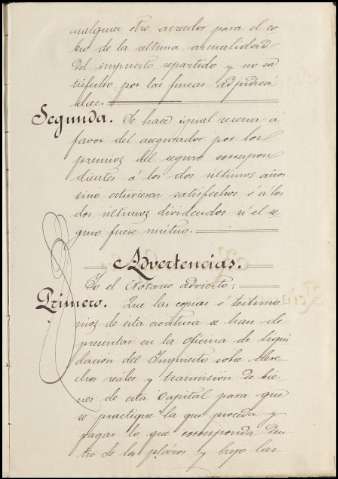 cualquier otro acreedor para el co-
bro de la ultima anualidad
del impuesto repartido y no sa-
tisfecho por las fincas adjudica
bles.
Segunda. Se hace igual reserva á
favor del asegurador por los
premios del seguro correspon-
dientes á los dos ultimos años
sino estuvieren satisfechos, ó á los
dos ultimos dividendos si el se
guro fuere mutuo.
Advertencias.
Yo el Notario advierto:
Primero. Que las copias ó testimo-
nios de esta escritura se han de
presentar en la oficina de liqui
dacion del Impuesto sobre dere
chos reales y trasmision de bie
nes de esta Capital para que
se practique la que proceda y
pagar lo que corresponda den
tro de los plazos y bajo las